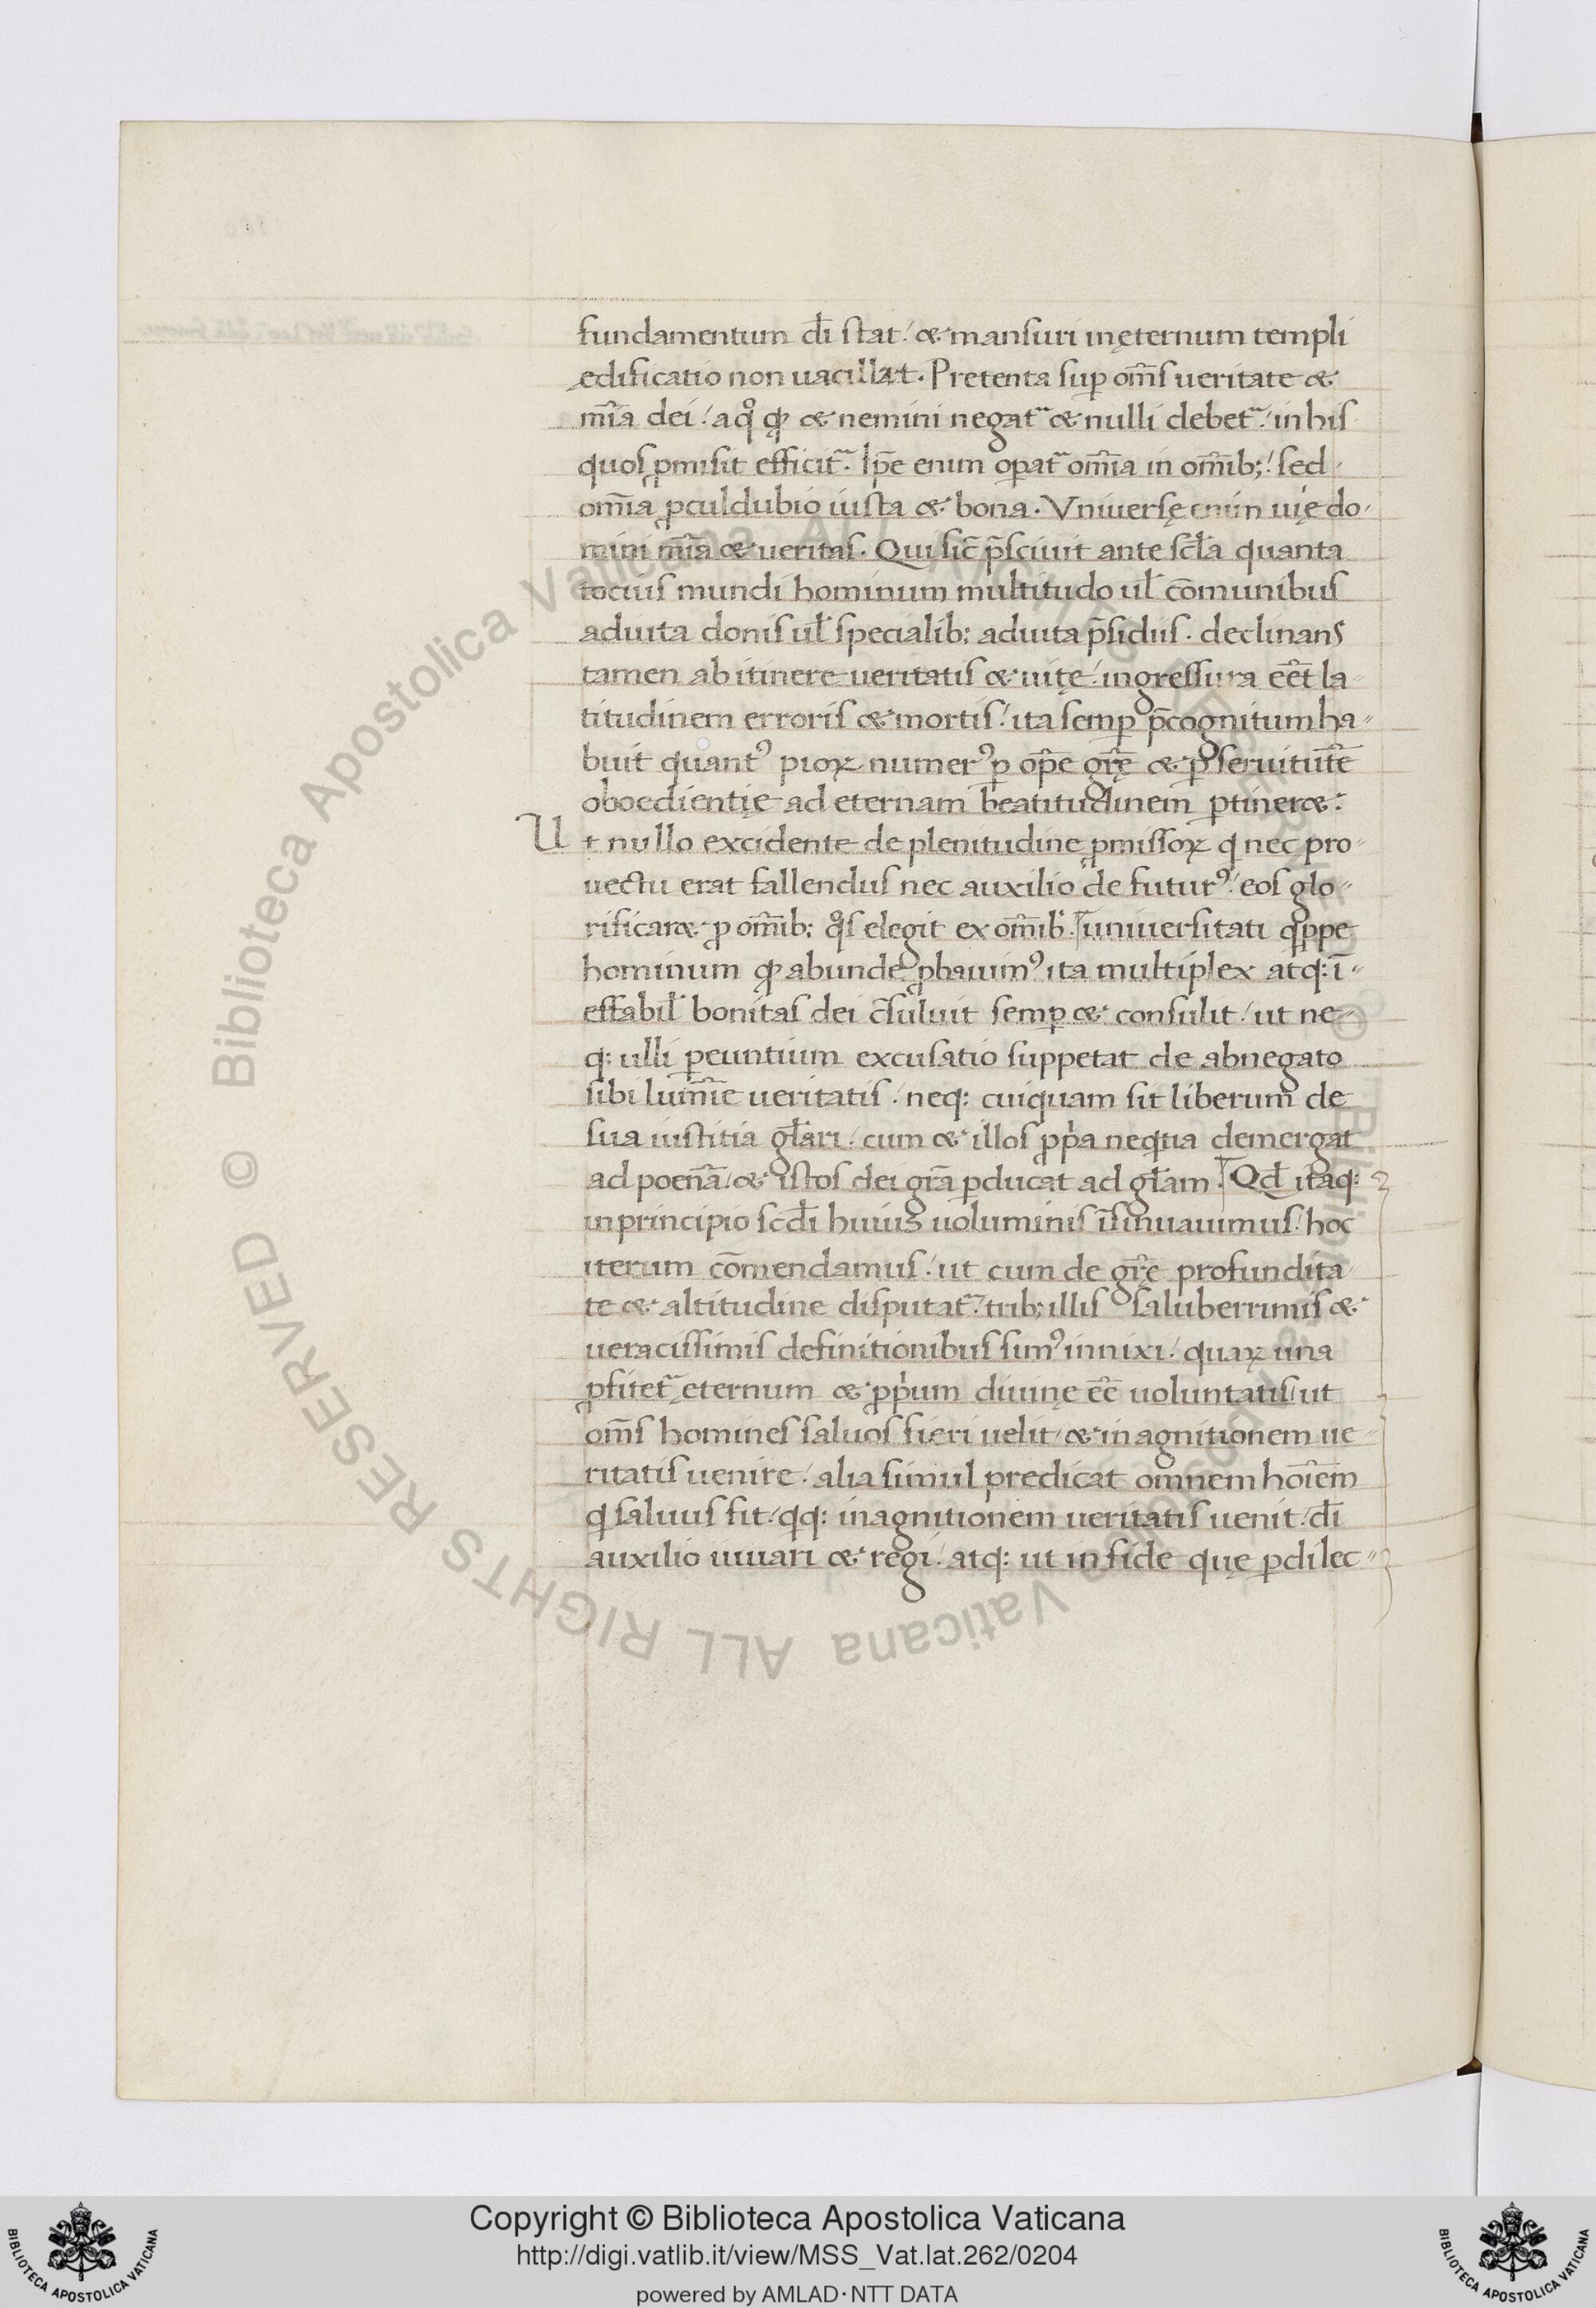 fundamentum dī stat / & mansuri in ęternum templi
edificatio non uacillæt. Pretenta sup om̄s ueritate &
mīa dei / a qͦ qđ & nemini negat᷑ & nulli debet᷑ / in his
quos pmisit efficit᷑. Ip̄e enim operat᷑ om̄ia in om̄ib; / sed
om̄ia pculdubio iusta & bona. Vniuersę enim uię do-
mini mīa & ueritas. Qui sic̄ p̄sciuit ante scła quanta
tocius mundi hominum multitudo uł cōmunibus
adiuta donis uł specialib; adiuta p̄sidiis. declinans
tamen ab itinere ueritatis & uitę / ingressura eēt la-
titudinem erroris & mortis / ita semp p̄cognitum ha-
buit quantꝰ pioꝝ numerꝰ p op̄e gr̄ę & p seruitutē
oboedientię ad eternam beatitudinem ptiner&.
Ut nullo excidente de plenitudine pmissoꝝ q nec pro-
uectu erat fallendus nec auxilio defuturꝰ / eos glo-
rificar& p om̄ib; qͦs elegit ex om̄ib. uniuersitati qppe
hominum qđ abunde pbauimꝰ ita multiplex atq: ī-
effabił bonitas dei c̄suluit semp & consulit / ut ne-
q: ulli peuntium excusatio suppetat de abnegato
sibi lum̄ie ueritatis / neq: cuiquam sit liberum de
sua iustitia głari / cum & illos ppͥa neqͥtia demergat
ad poenā / & istos dei grā pducat ad głam. Qđ itaq:
in principio scđi huius uoluminis īsinuauimus / hoc
iterum cōmendamus / ut cum de gr̄ę profundita-
te & altitudine disputat᷑ / trib; illis saluberrimis &
ueracissimis definitionibus simꝰ innixi / quaꝝ una
pfitet᷑ ęternum & ppͥum diuinę eē uoluntatis / ut
om̄s homines saluos fieri uelit / & in agnitionem ue-
ritatis uenire / alia simul predicat omnem hoīem
q saluus fit / qq: in agnitionem ueritatis uenit / dī
auxilio iuuari & regi / atq: ut in fide quę p dilec-
© Biblioteca Apostolica Vaticana ALL RIGHTS RESERVED © Biblioteca Apostolica Vaticana ALL RIGHTS RESERVED
Copyright © Biblioteca Apostolica Vaticana
http://digi.vatlib.it/view/MSS_Vat.lat.262/0204
powered by AMLAD·NTT DATA
BIBLIOTECA APOSTOLICA VATICANA
BIBLIOTECA APOSTOLICA VATICANA